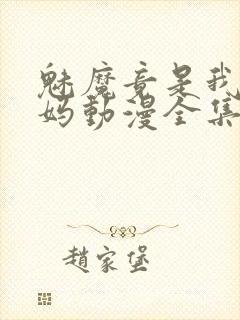 魅魔竟是我
妈動漫全集
趙家堡